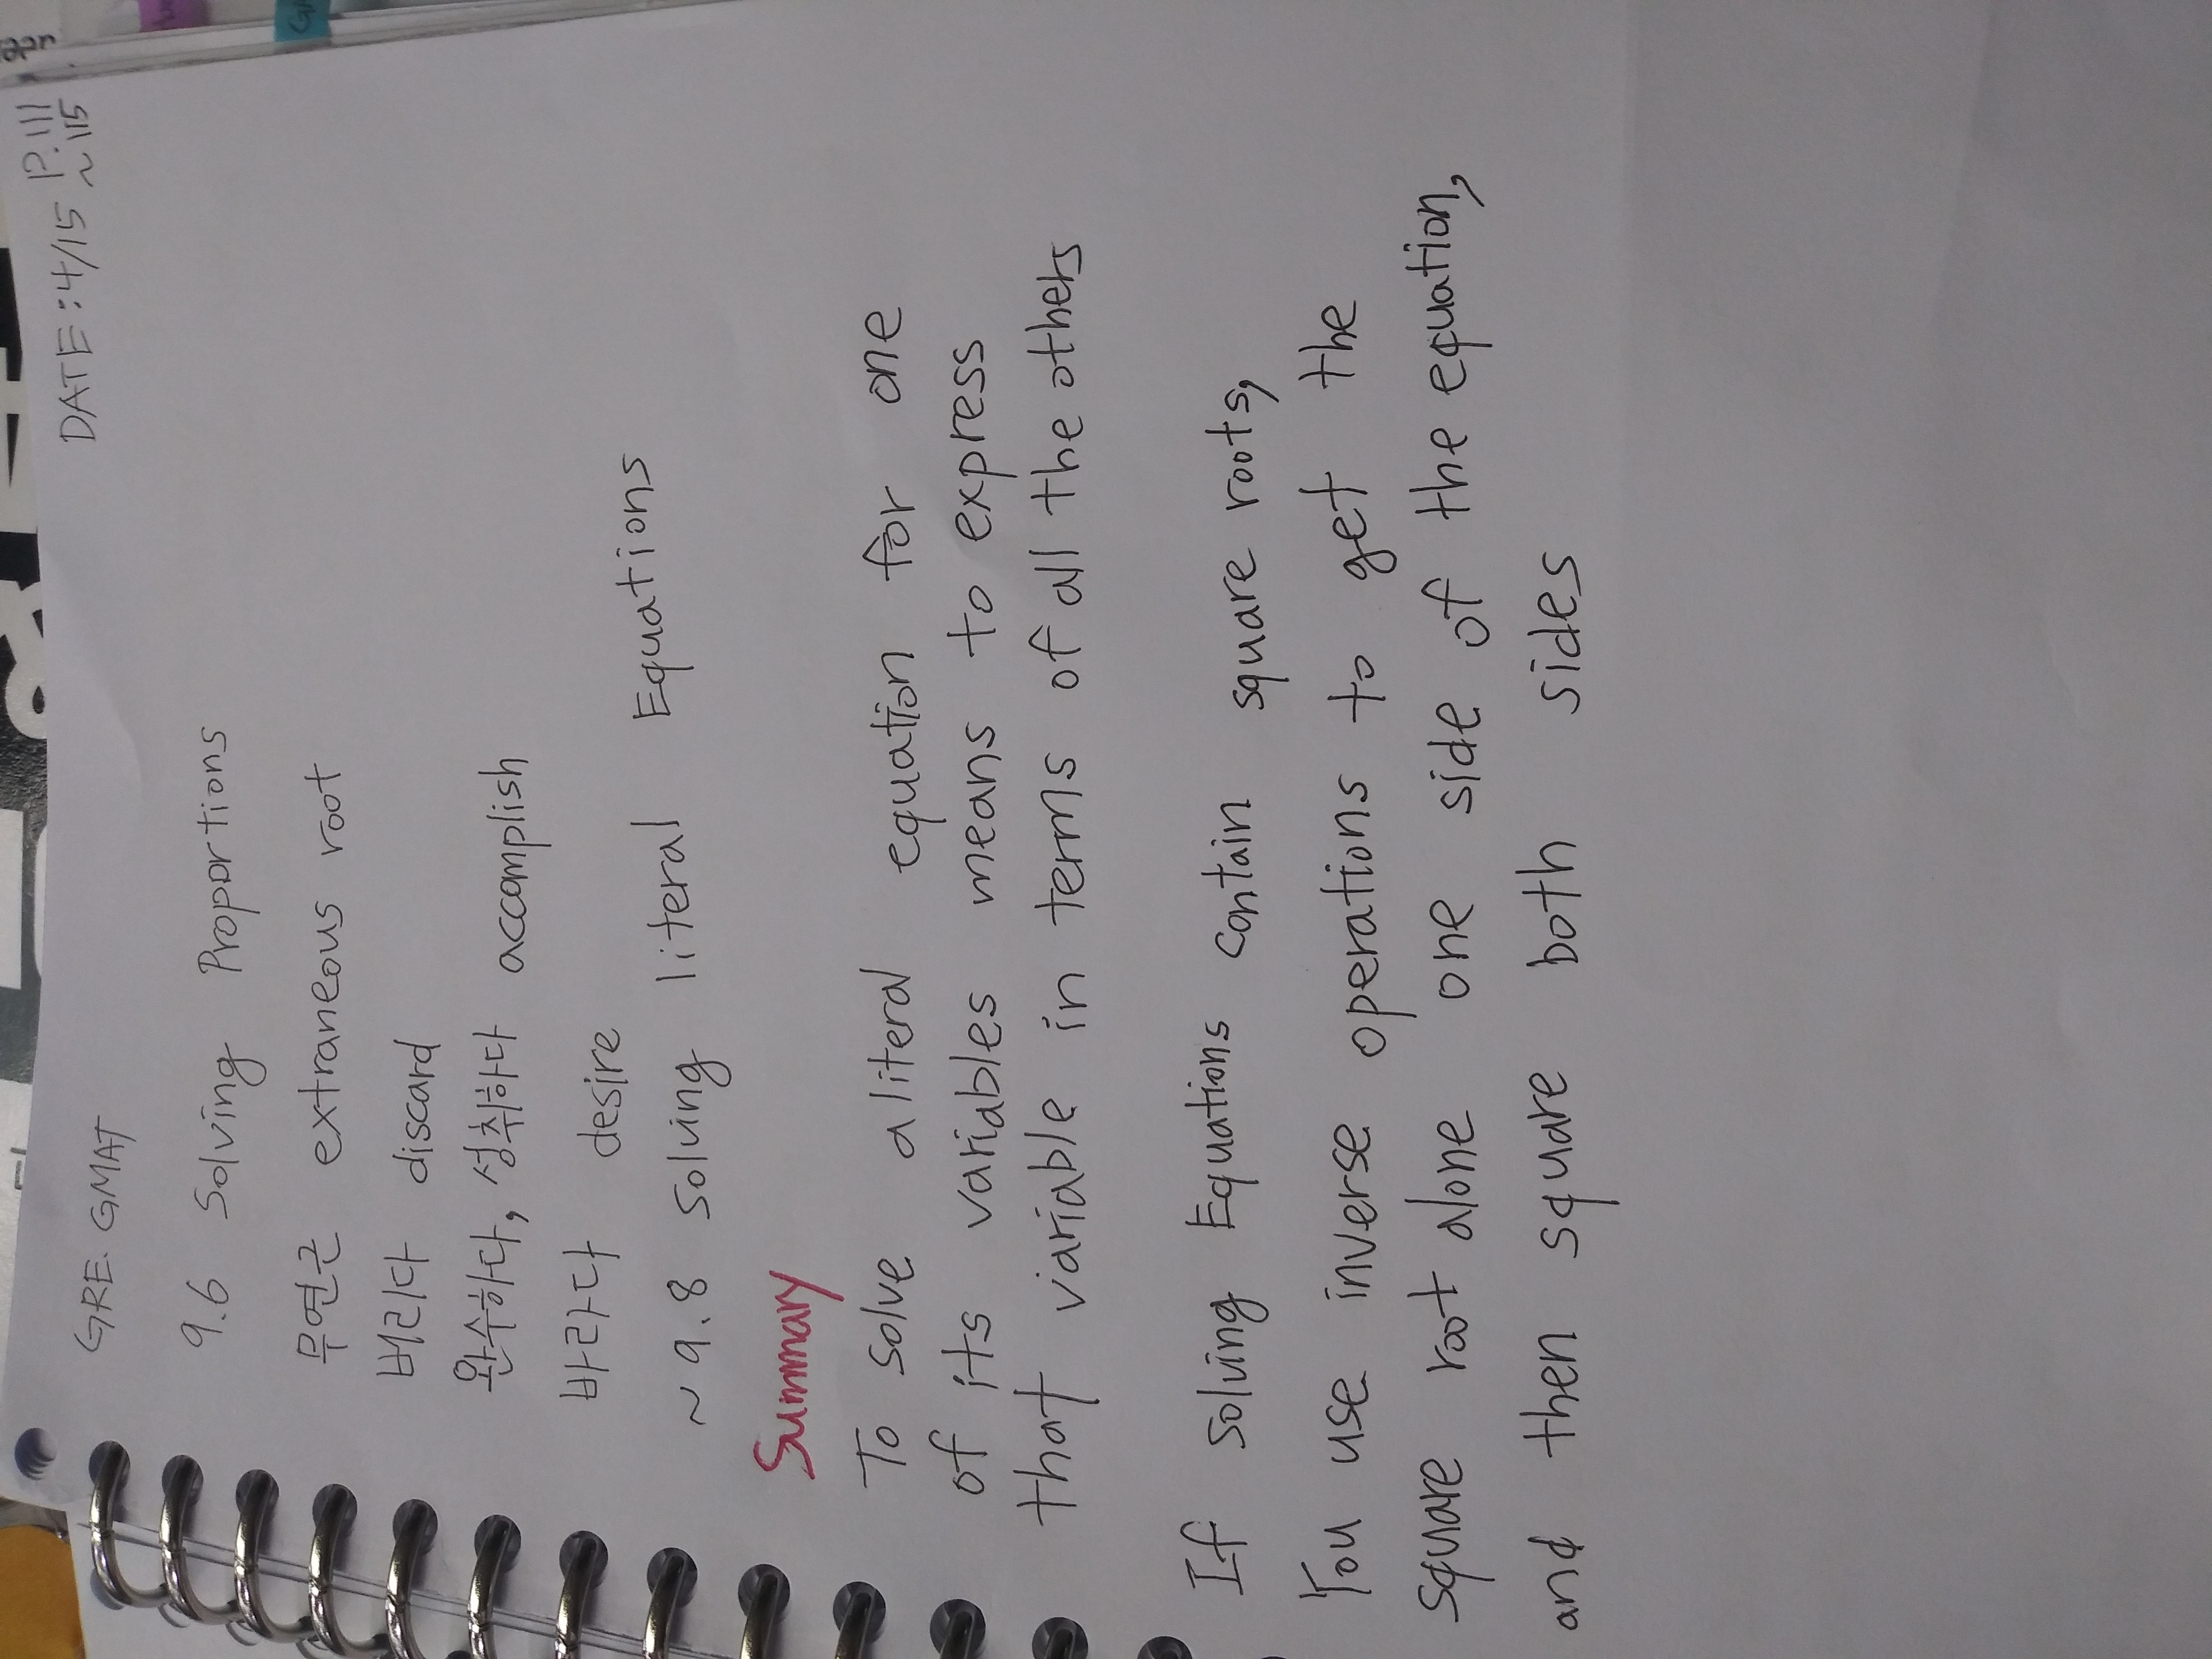 DATE: 4/15 P.111
~115
GRE. GMAT
9.6 Solving Proportions
무연근 extraneous root
버리다 discard
완수하다, 성취하다 accomplish
바라다 desire
~ 9.8 solving literal Equations
Summary
To solve a literal equation for one
of its variables means to express
that variable in terms of all the others
If solving Equations contain square roots,
You use inverse operations to get the
square root alone one side of the equation,
and then square both sides